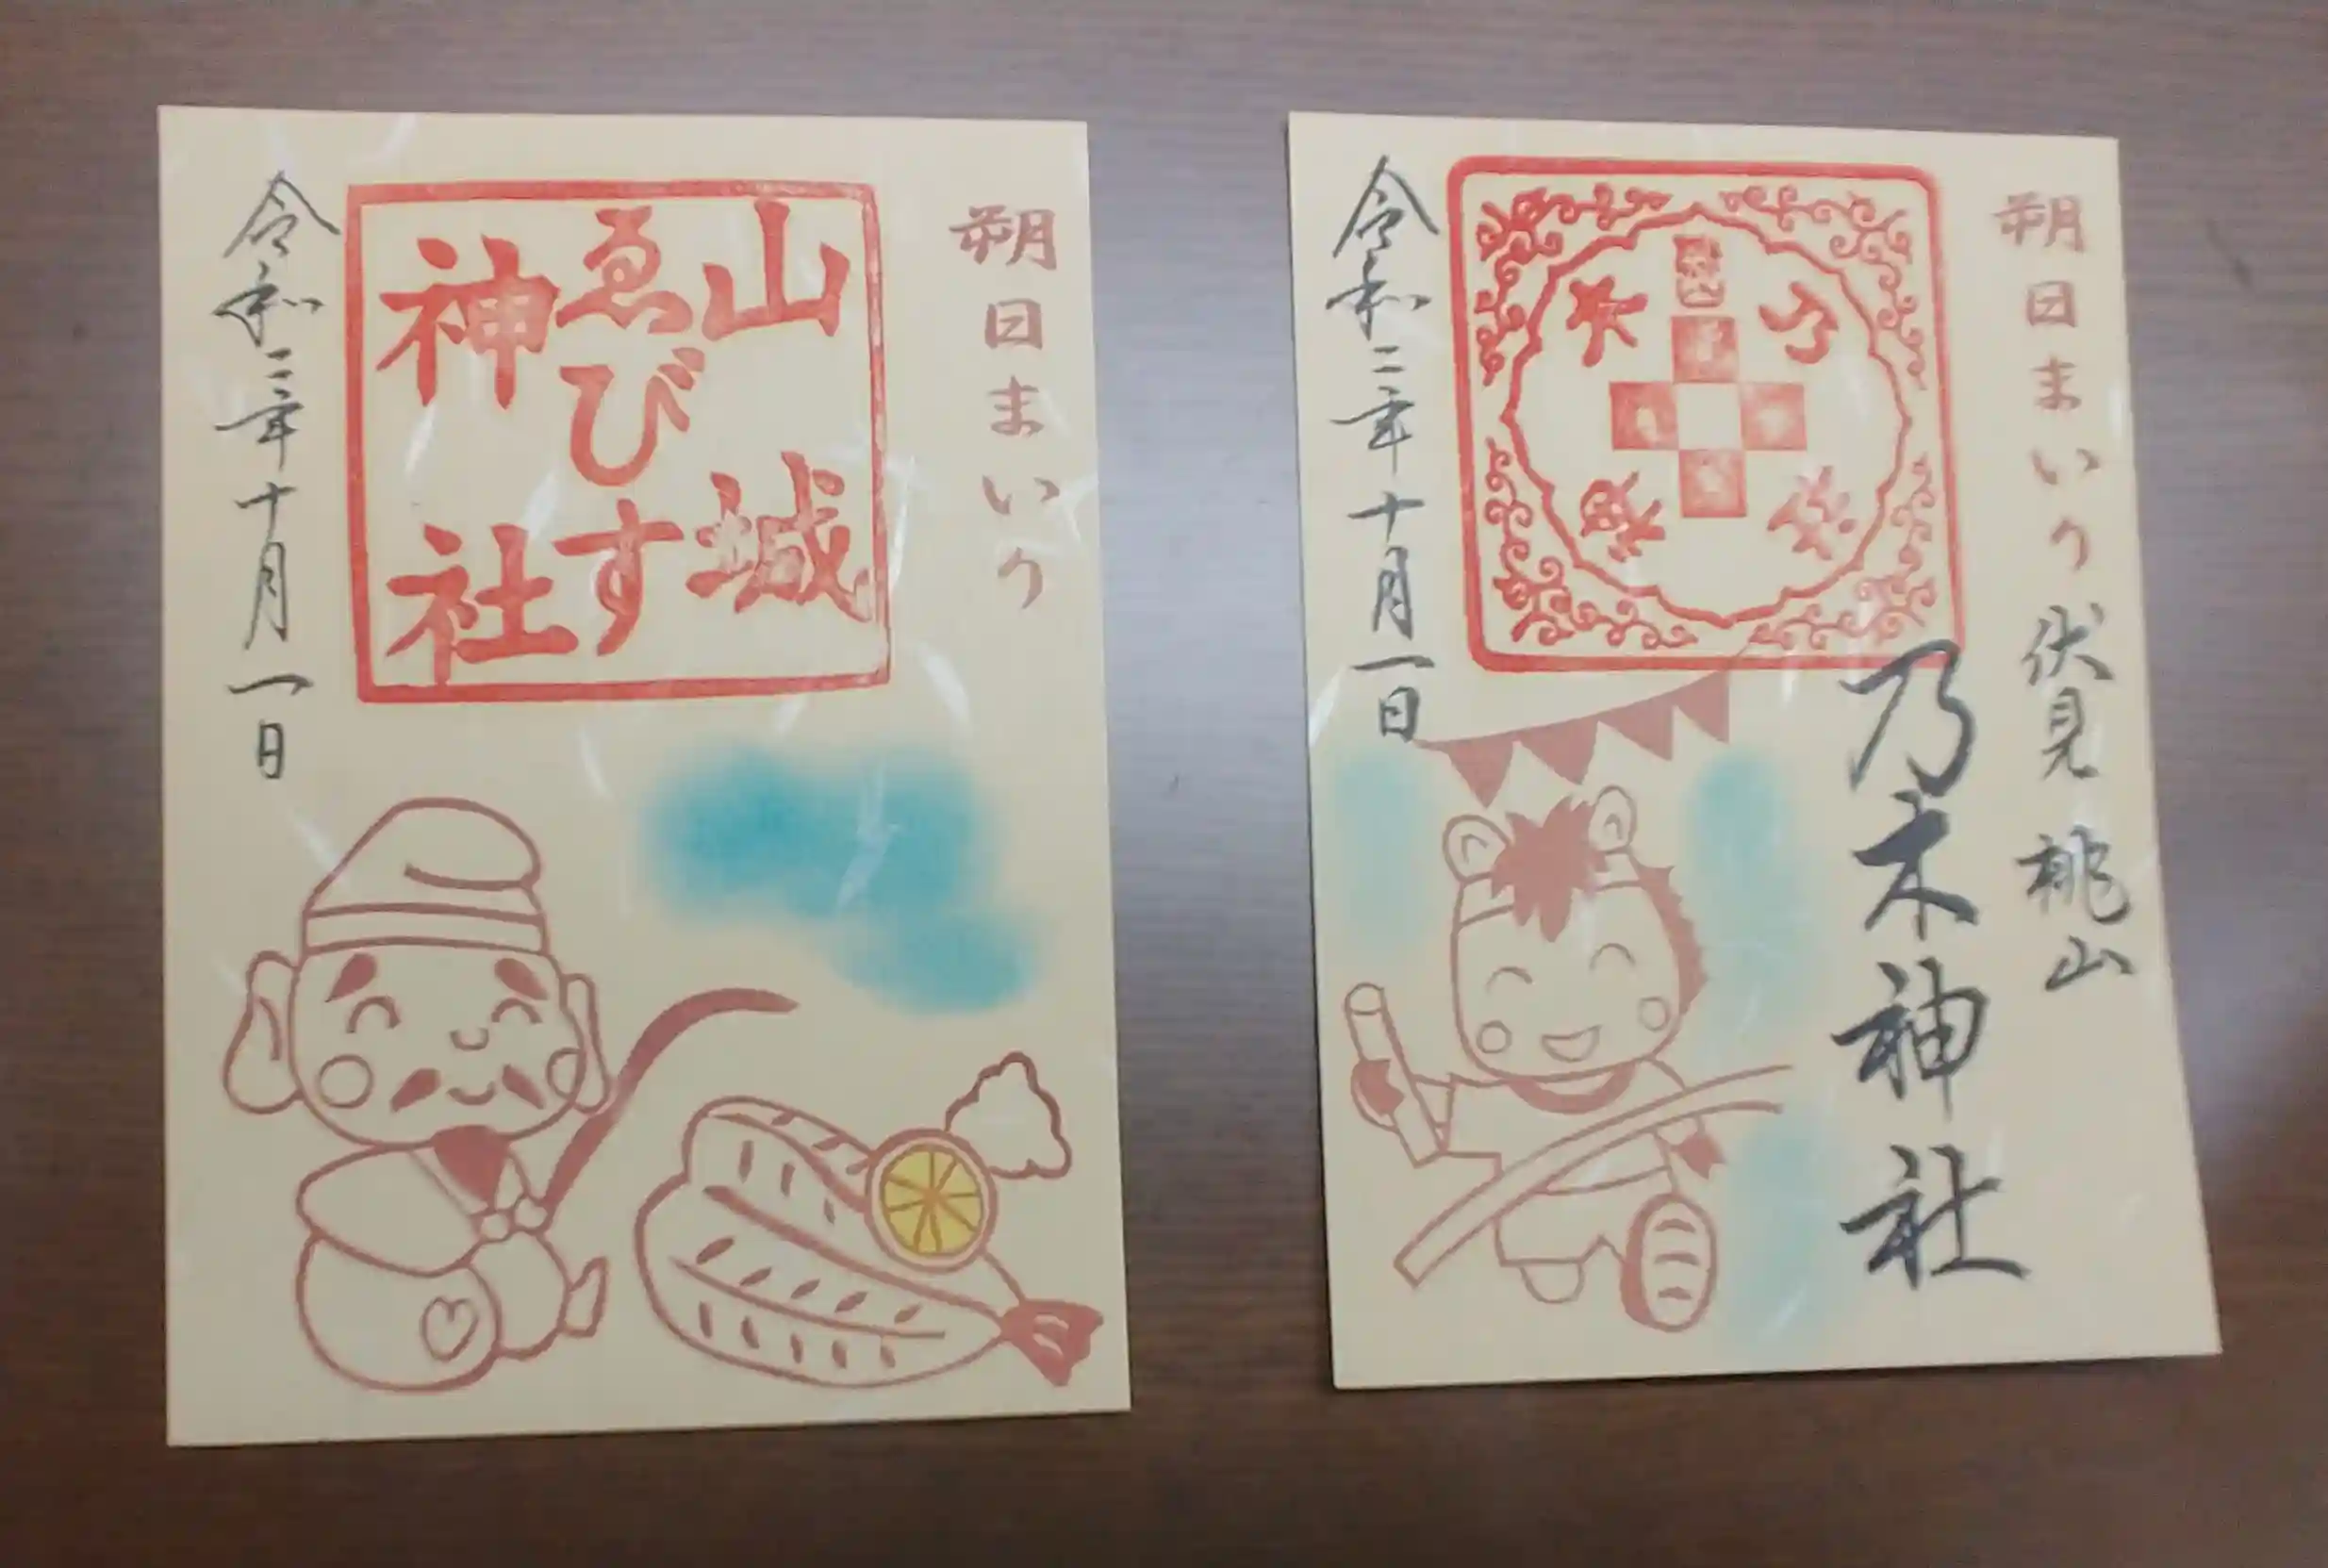 朔日まいり
山城
ゑびす
神社
令和二年十月一日
朔日まいり
伏見 桃山
乃木神社
令和二年十月一日